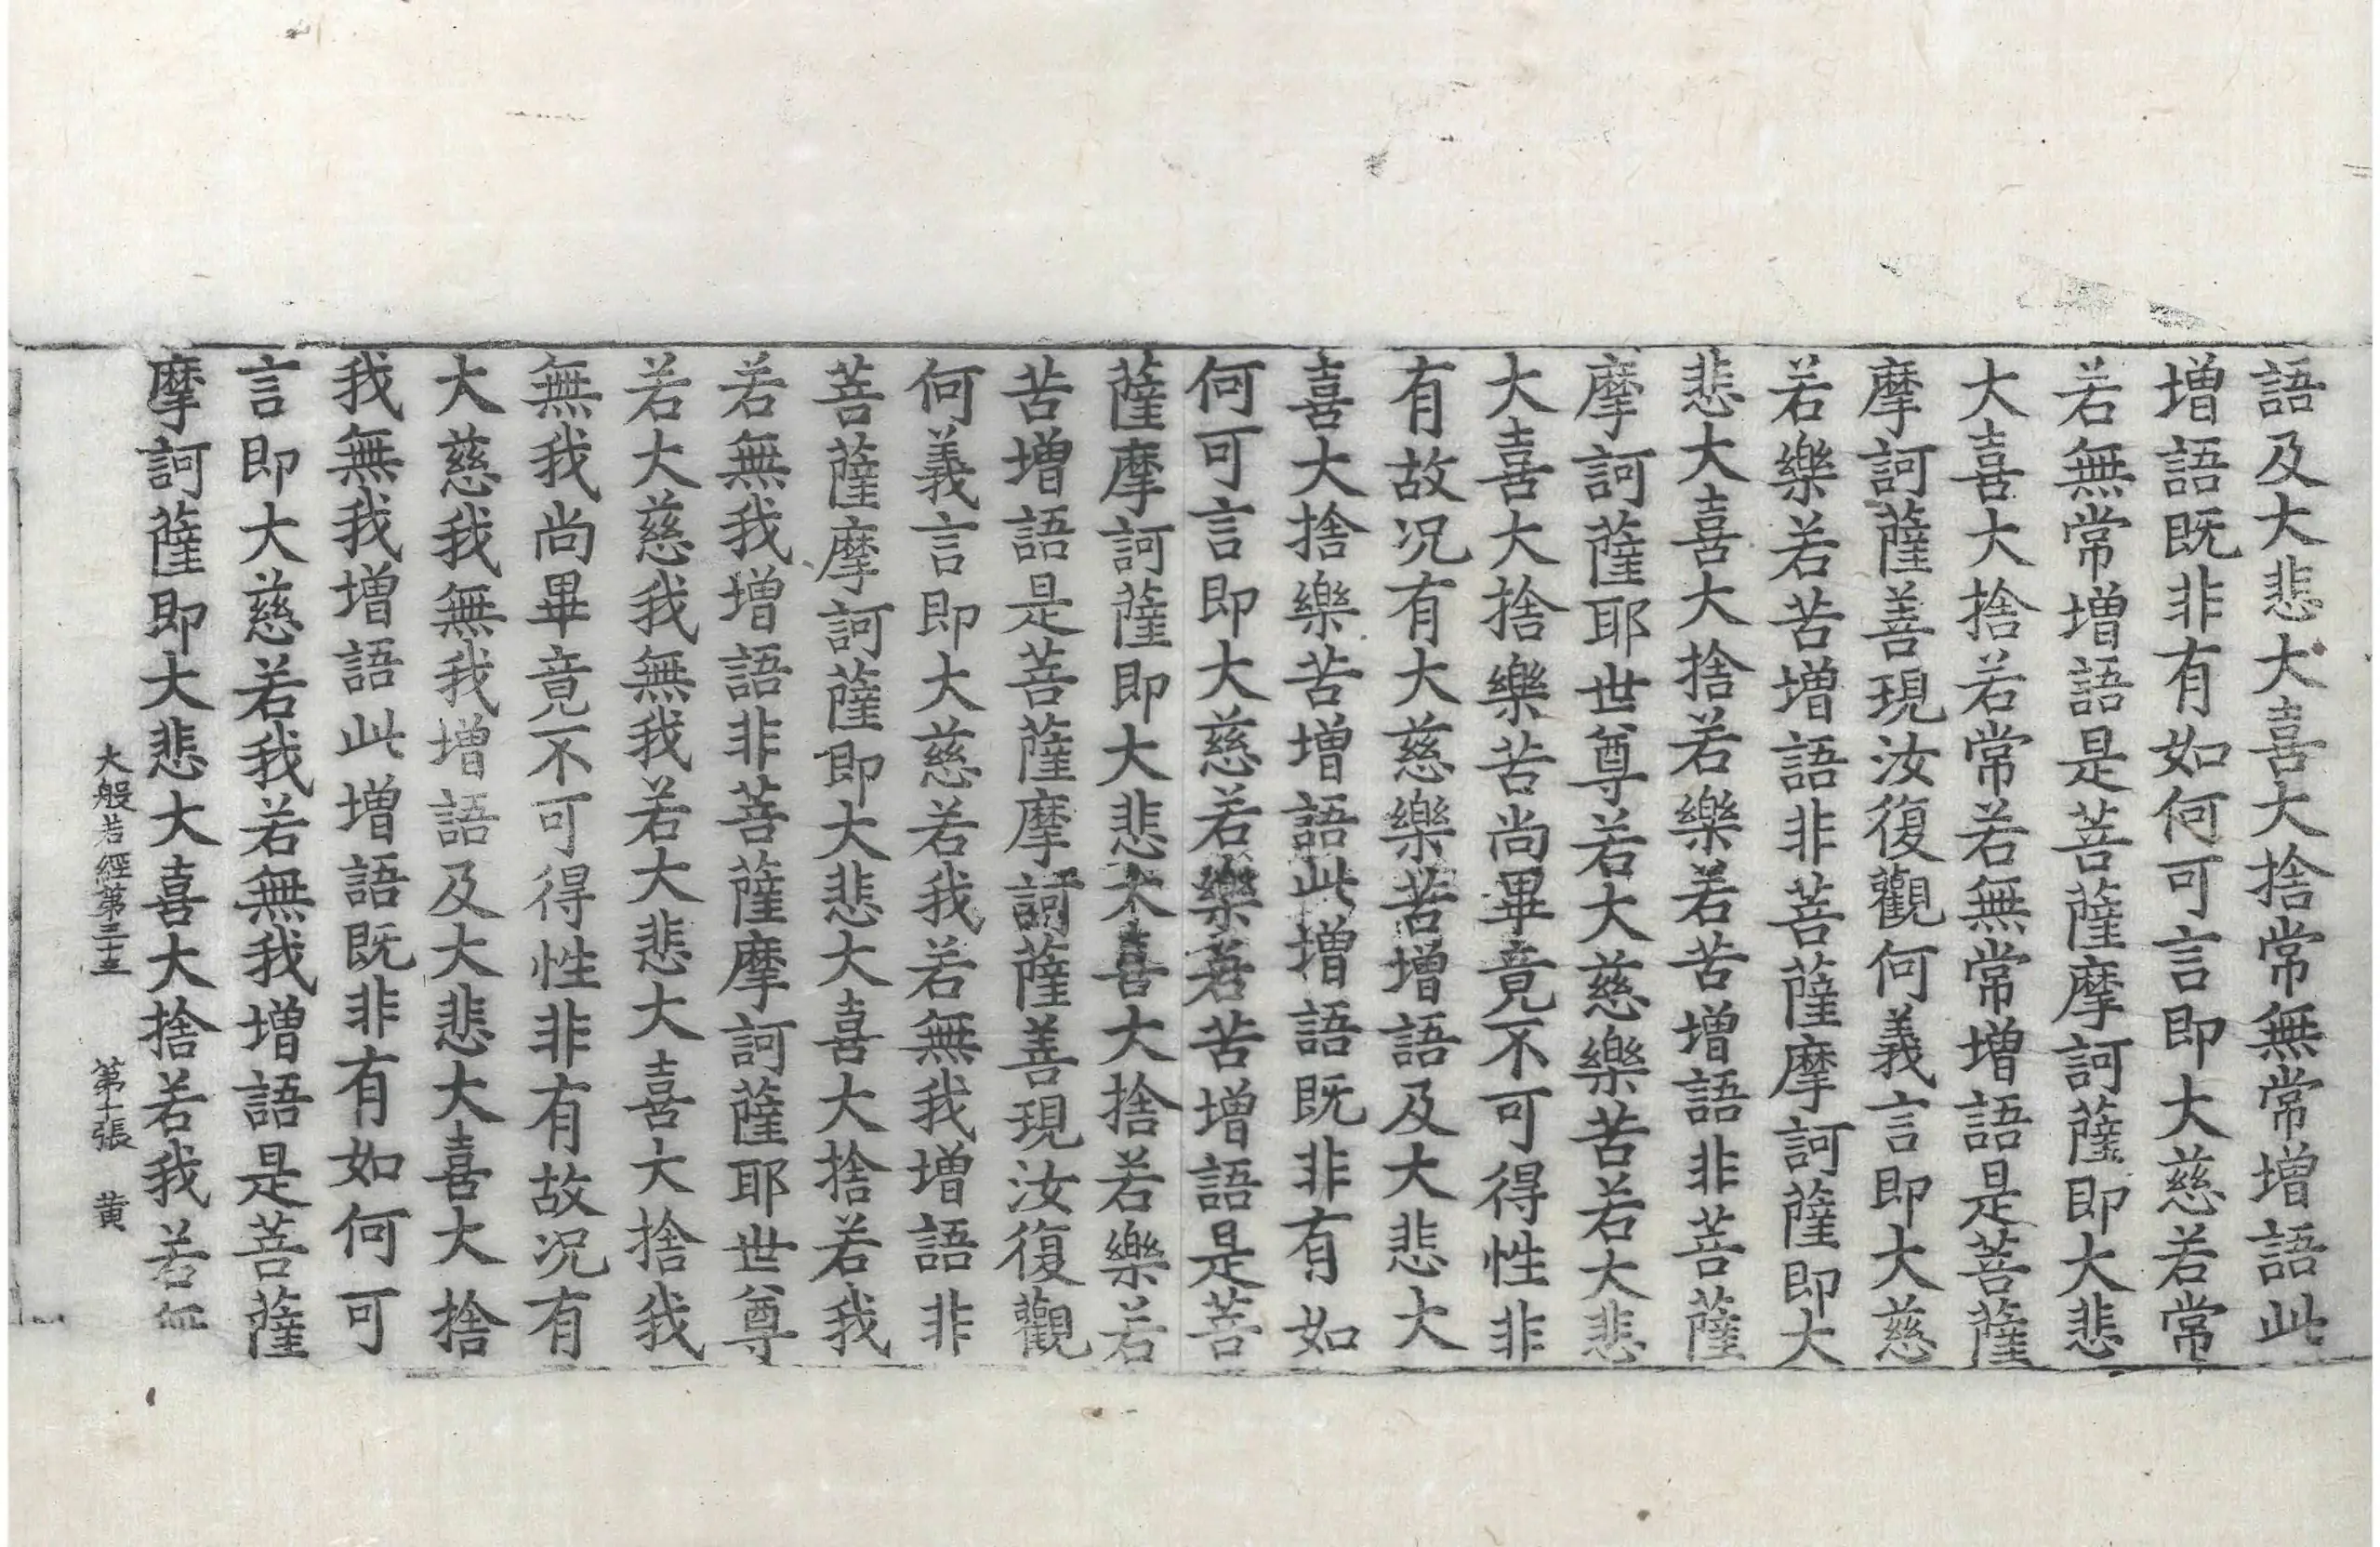 語及大悲大喜大捨常無常增語此
增語既非有如何可言即大慈若常
若無常增語是菩薩摩訶薩即大悲
大喜大捨若常若無常增語是菩薩
摩訶薩善現汝復觀何義言即大慈
若樂若苦增語非菩薩摩訶薩即大
悲大喜大捨若樂若苦增語非菩薩
摩訶薩耶世尊若大慈樂苦若大悲
大喜大捨樂苦尚畢竟不可得性非
有故况有大慈樂苦增語及大悲大
喜大捨樂苦增語此增語既非有如
何可言即大慈若樂若苦增語是菩
薩摩訶薩即大悲大喜大捨若樂若
苦增語是菩薩摩訶薩善現汝復觀
何義言即大慈若我若無我增語非
菩薩摩訶薩即大悲大喜大捨若我
若無我增語非菩薩摩訶薩耶世尊
若大慈我無我若大悲大喜大捨我
無我尚畢竟不可得性非有故况有
大慈我無我增語及大悲大喜大捨
我無我增語此增語既非有如何可
言即大慈若我若無我增語是菩薩
摩訶薩即大悲大喜大捨若我若無
大般若經第三十三 第十張 黄